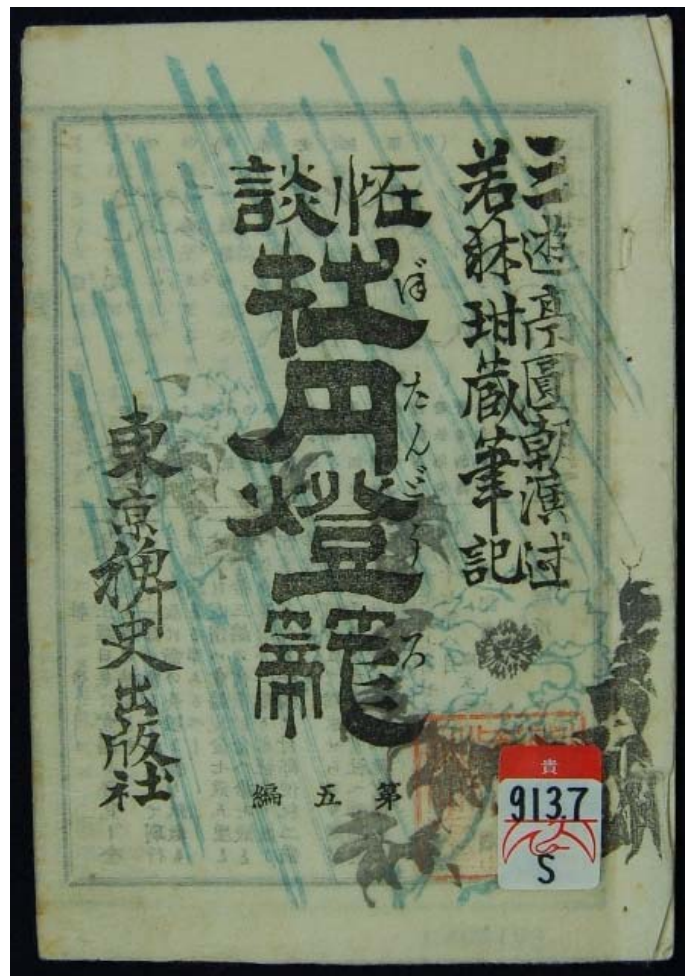 三遊亭圓朝演述
若林玵蔵筆記
怪談
牡丹燈籠
ぼたんどうろ
第五編
東京稗史出版社
貴
913.7
S